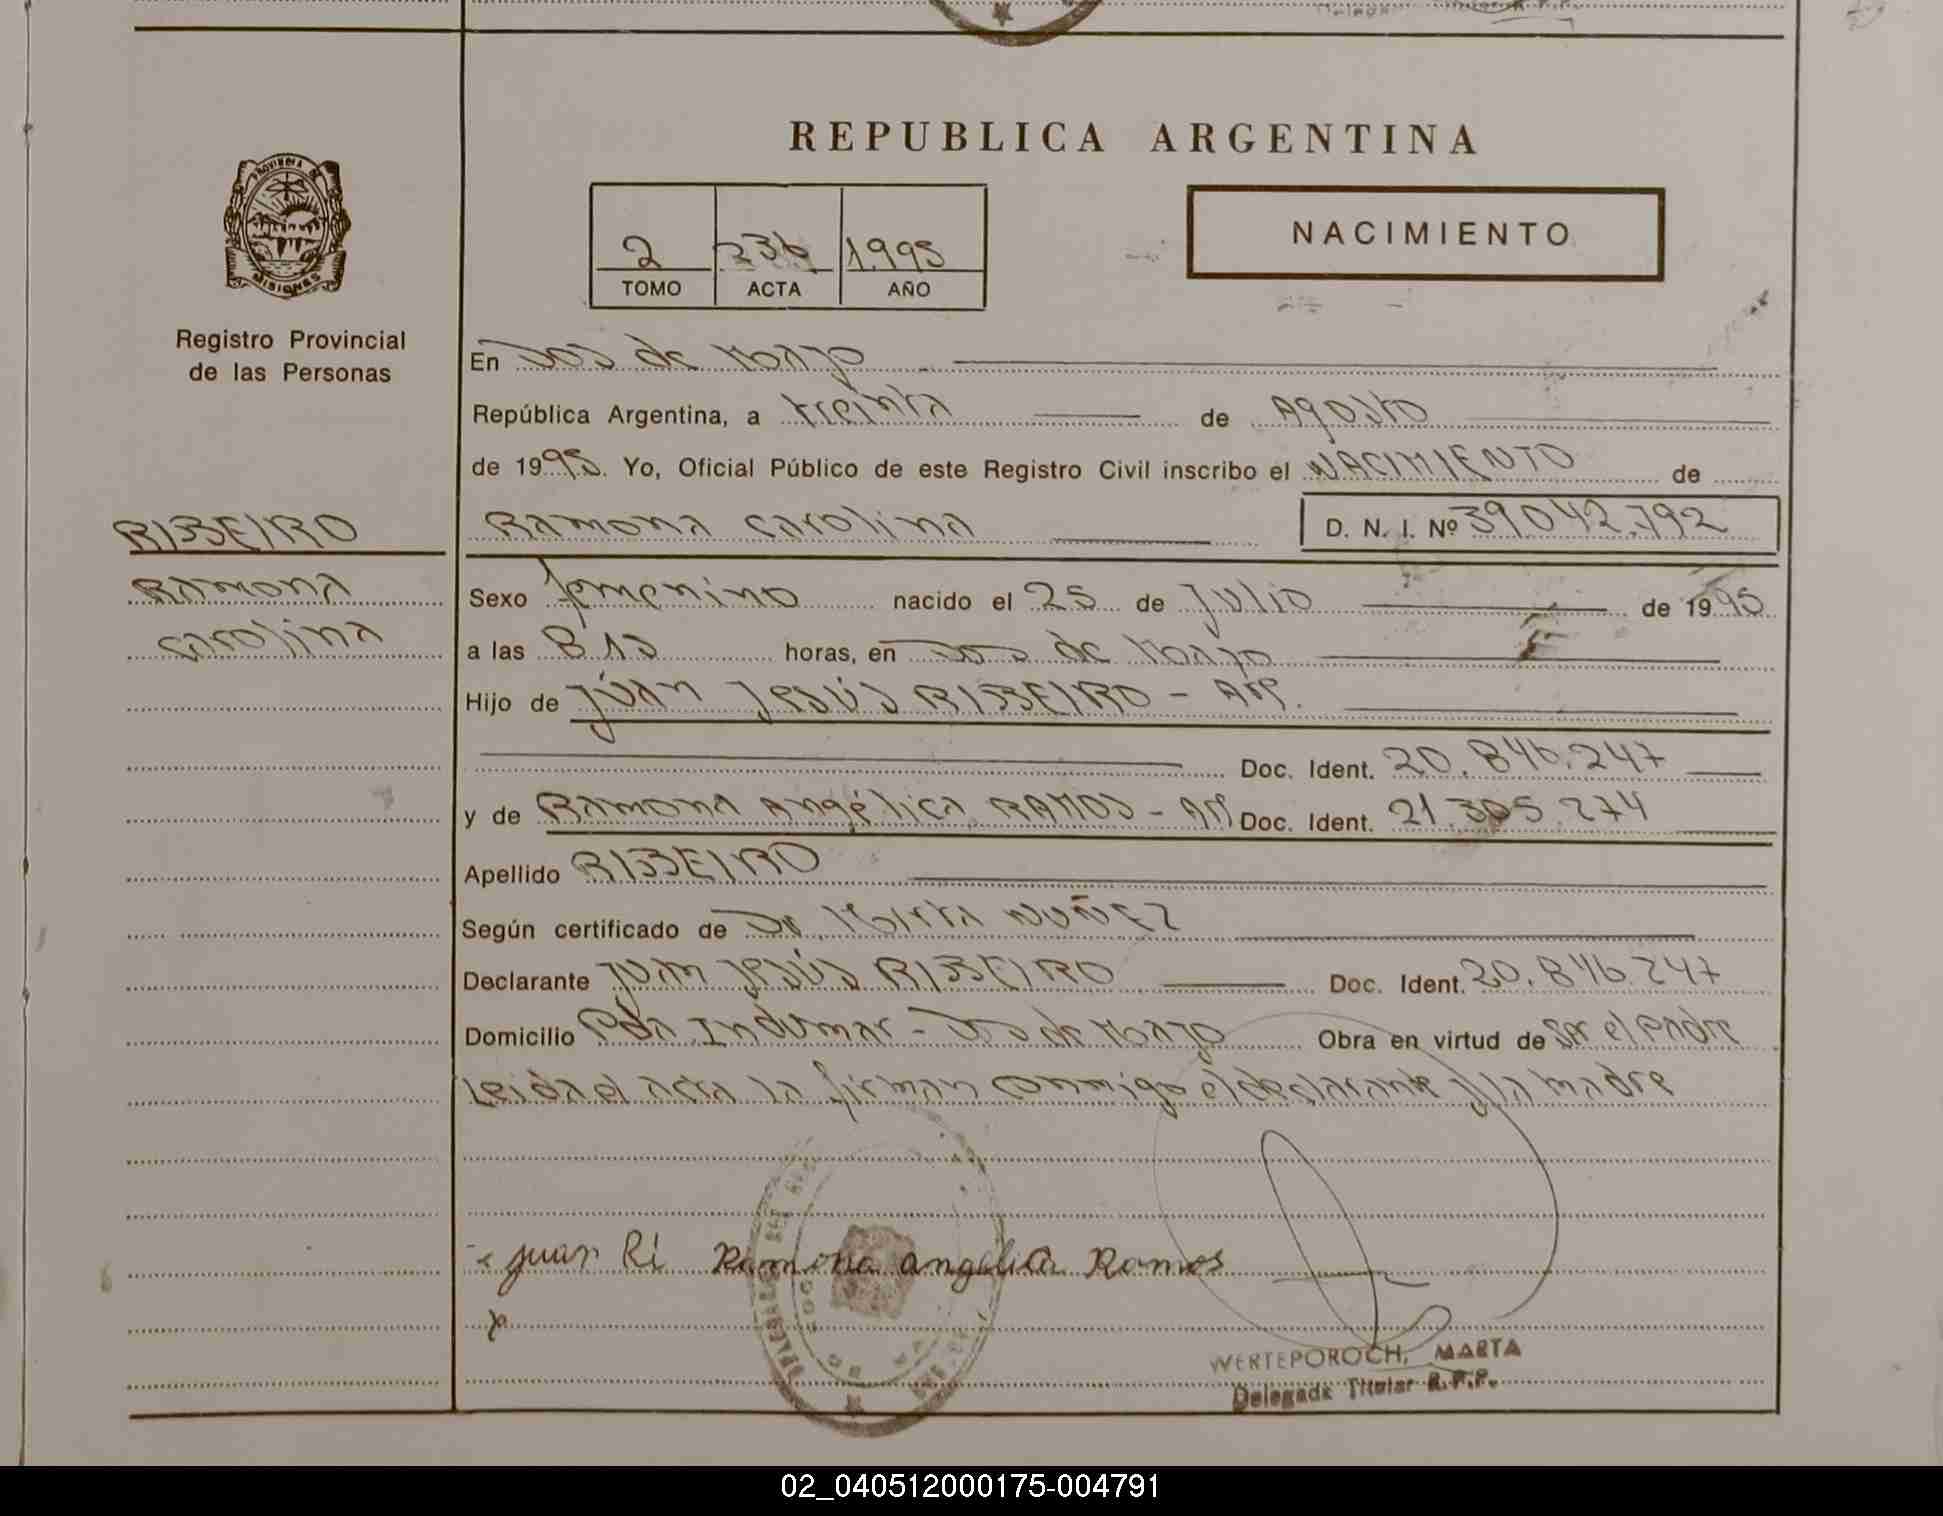 REPUBLICA ARGENTINA
PROVINCIA DE
MISIONES
Registro Provincial
de las Personas
2 236 1.995
TOMO ACTA AÑO
NACIMIENTO
En Dos de Mayo
República Argentina, a treinta de Agosto
de 1995. Yo, Oficial Público de este Registro Civil inscribo el NACIMIENTO de
RIBEIRO
Ramona
Carolina
Ramona Carolina D. N. I. Nº 39.042.792
Sexo femenino nacido el 25 de Julio de 1995
a las 8 15 horas, en Dos de Mayo
Hijo de Júan Jesús RIBEIRO - Arg.
Doc. Ident. 20.846.247
y de Ramona Angélica RAMOS - Arg Doc. Ident. 21.305.274
Apellido RIBEIRO
Según certificado de Dr. Mirta NUÑEZ
Declarante Juan Jesús RIBEIRO Doc. Ident. 20.846.247
Domicilio Pda. Indumar - Dos de Mayo Obra en virtud de ser el padre
Leida el acta la firman conmigo el declarante y la madre
juan Ri Ramona angelica Ramos
WERTEPOROCH, MARTA
Delegada Titular R.P.P.
02_040512000175-004791